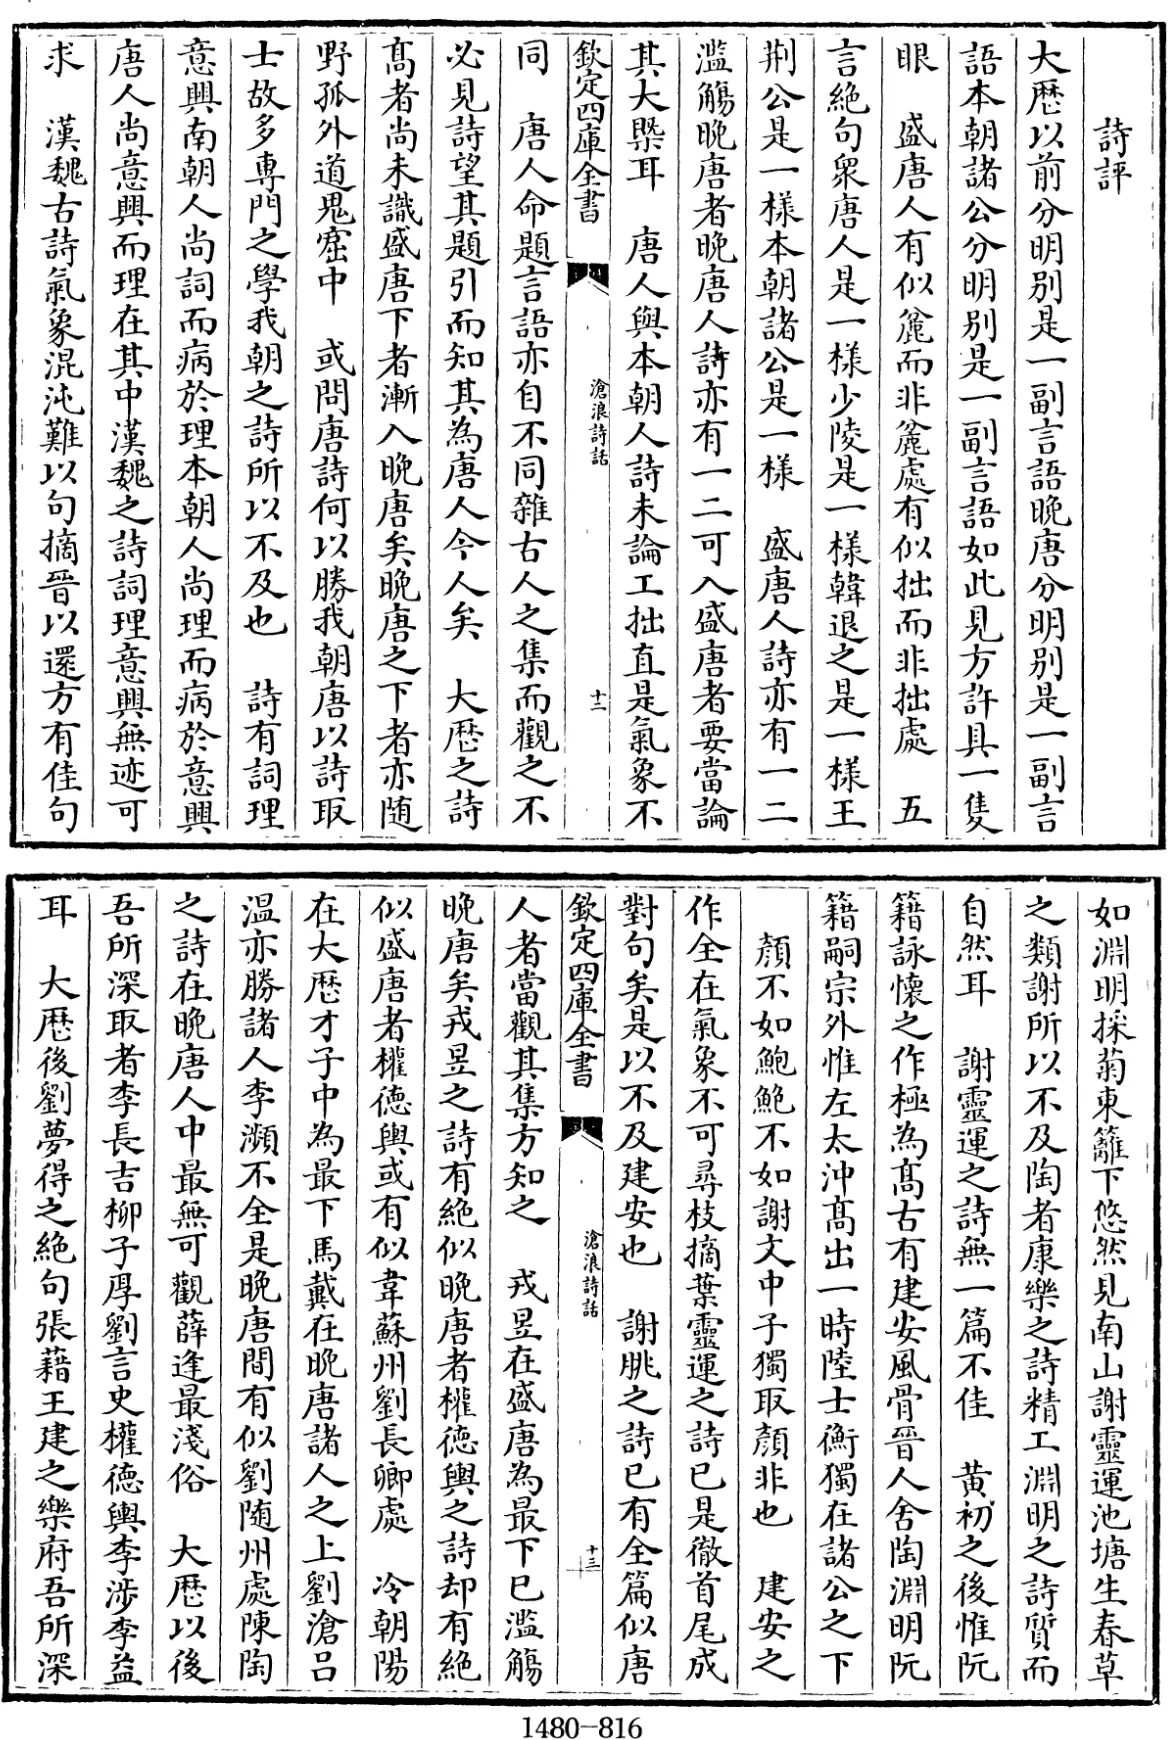 詩評
大厯以前分明別是一副言語晚唐分明別是一副言
語本朝諸公分明別是一副言語如此見方許具一隻
眼　盛唐人有似麄而非麄處有似拙而非拙處　五
言絶句衆唐人是一樣少陵是一樣韓退之是一樣王
荆公是一樣本朝諸公是一樣　盛唐人詩亦有一二
濫觴晚唐者晚唐人詩亦有一二可入盛唐者要當論
其大槩耳　唐人與本朝人詩未論工拙直是氣象不
欽定四庫全書　滄浪詩話　十二
同　唐人命題言語亦自不同雜古人之集而觀之不
必見詩望其題引而知其為唐人今人矣　大厯之詩
髙者尚未識盛唐下者漸入晚唐矣晚唐之下者亦隨
野孤外道鬼窟中　或問唐詩何以勝我朝唐以詩取
士故多專門之學我朝之詩所以不及也　詩有詞理
意興南朝人尚詞而病於理本朝人尚理而病於意興
唐人尚意興而理在其中漢魏之詩詞理意興無迹可
求　漢魏古詩氣象混沌難以句摘晉以還方有佳句
如淵明採菊東籬下悠然見南山謝靈運池塘生春草
之類謝所以不及陶者康樂之詩精工淵明之詩質而
自然耳　謝靈運之詩無一篇不佳　黄初之後惟阮
籍詠懷之作極為髙古有建安風骨晉人舍陶淵明阮
籍嗣宗外惟左太沖髙出一時陸士衡獨在諸公之下
顔不如鮑鮑不如謝文中子獨取顔非也　建安之
作全在氣象不可尋枝摘葉靈運之詩已是徹首尾成
對句矣是以不及建安也　謝朓之詩已有全篇似唐
欽定四庫全書　滄浪詩話　十三
人者當觀其集方知之　戎昱在盛唐為最下已濫觴
晚唐矣戎昱之詩有絶似晚唐者權德輿之詩却有絶
似盛唐者權德輿或有似韋蘇州劉長卿處　冷朝陽
在大厯才子中為最下馬戴在晚唐諸人之上劉滄吕
温亦勝諸人李瀕不全是晚唐間有似劉隨州處陳陶
之詩在晚唐人中最無可觀薛逢最淺俗　大厯以後
吾所深取者李長吉柳子厚劉言史權德輿李渉李益
耳　大厯後劉夢得之絶句張籍王建之樂府吾所深
1480-816